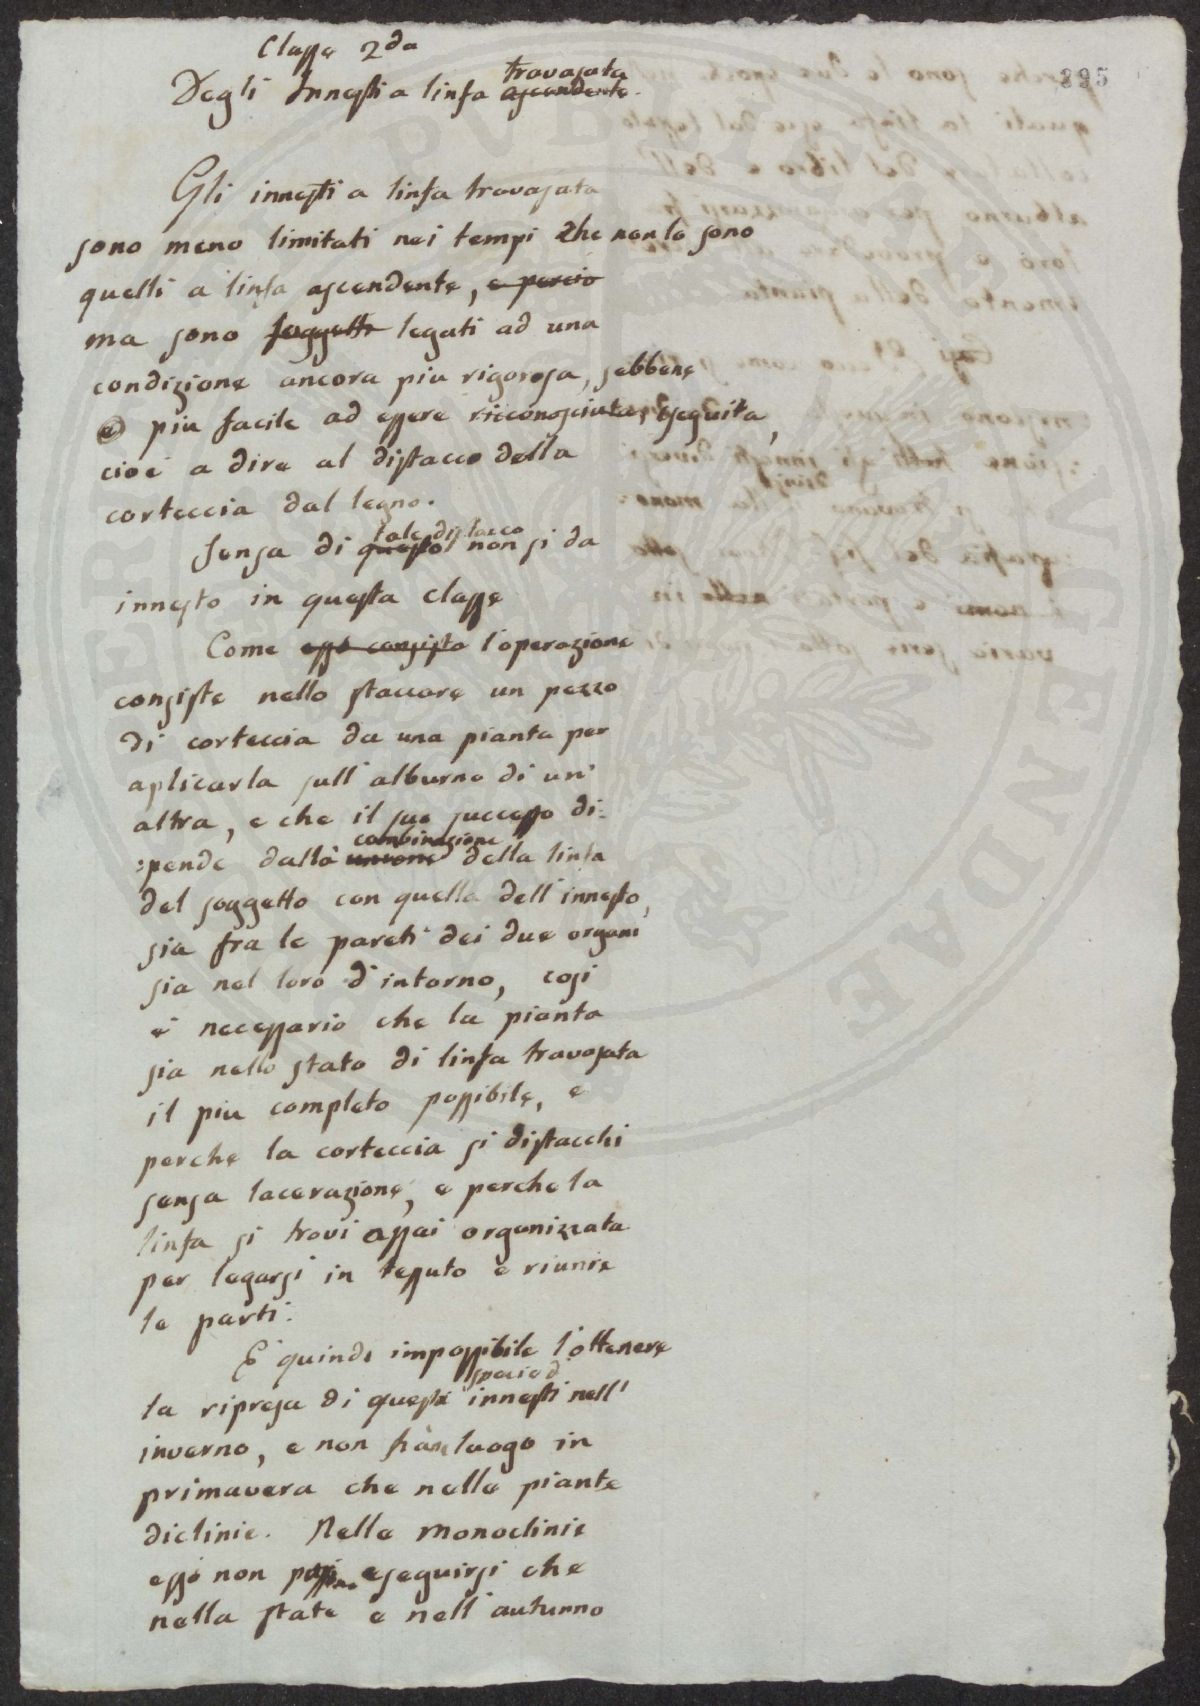 895
Classe 2da
travasata
Degli Innesti a linfa ascendente.
Gli innesti a linfa travasata
sono meno limitati nei tempi che non lo sono
quelli a linfa ascendente, e percio
ma sono soggetti legati ad una
condizione ancora piu rigorosa, sebbene
e piu facile ad essere riconosciuta, eseguita,
cioè a dire al distacco della
corteccia dal legno.
tale distacco
Senza di questo non si da
innesto in questa classe
Come esso consista l'operazione
consiste nello staccare un pezzo
di corteccia da una pianta per
aplicarla sull'alburno di un'
altra, e che il suo successo di:
combinazione
:pende dalla unione della linfa
del soggetto con quella dell'innesto,
sia fra le pareti dei due organi
sia nel loro d'intorno, cosi
e' necessario che la pianta
sia nello stato di linfa travasata
il piu completo possibile, e
perche la corteccia si distacchi
senza lacerazione, e perche la
linfa si trovi assai organizzata
per legarsi in tessuto e riunire
le parti.
E' quindi impossibile l'ottenere
specie d'
la ripresa di questi innesti nell'
inverno, e non han luogo in
primavera che nelle piante
diclinie. Nelle monoclinie
essi non possono eseguirsi che
nella state e nell'autunno